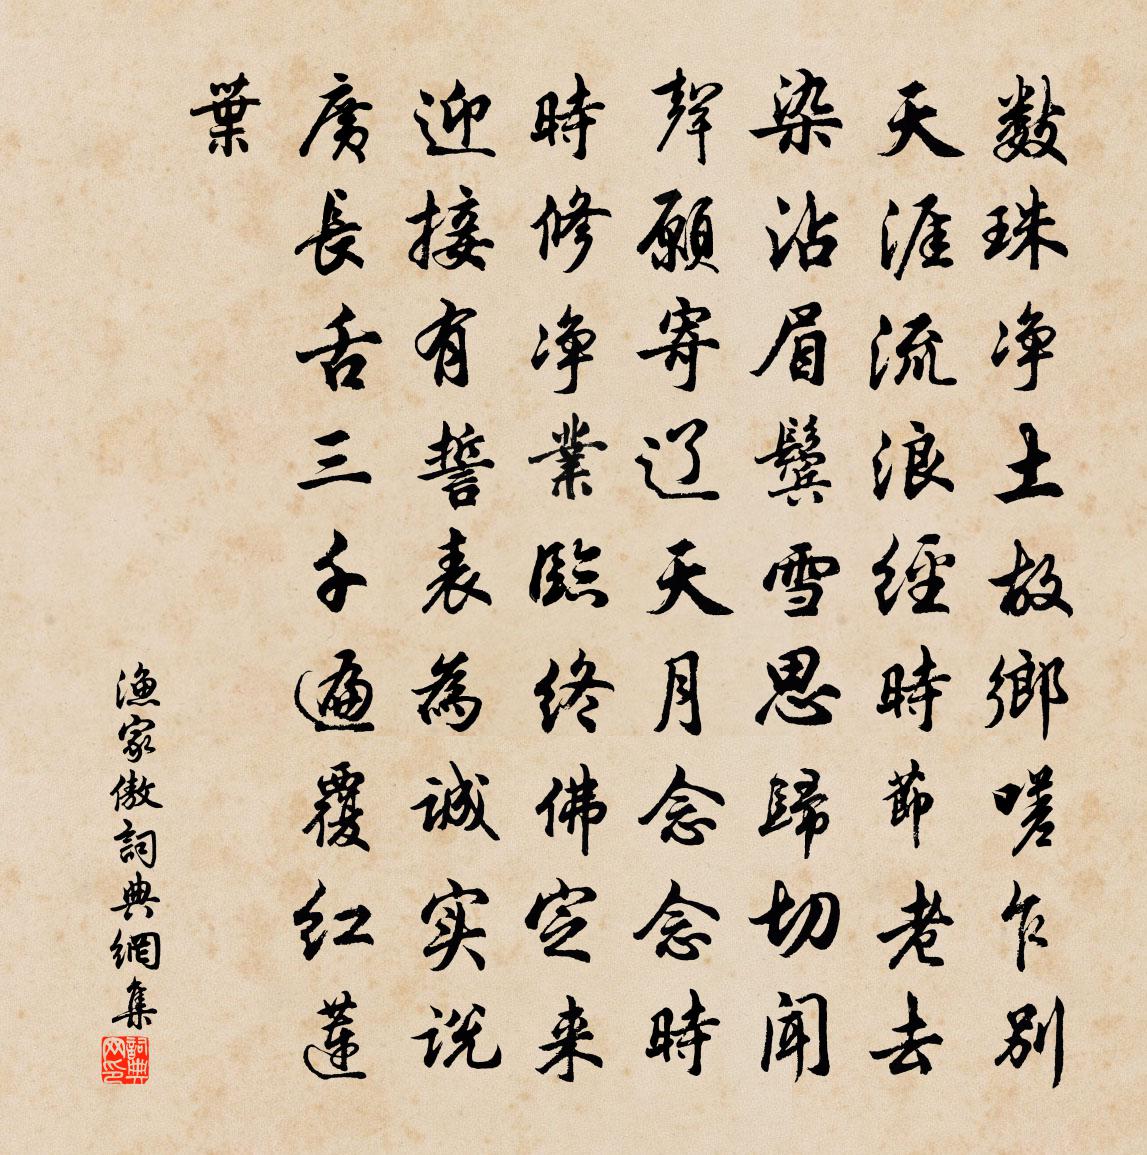 數珠净土故鄉嗟乍别
天涯流浪經時節老去
染沾眉鬢雪思歸切聞
聲願寄辽天月念念時
時修净業臨终佛定来
迎接有誓表為誠实说
廣長舌三千遍覆红蓮
葉
漁家傲詞典網集
詞典网印